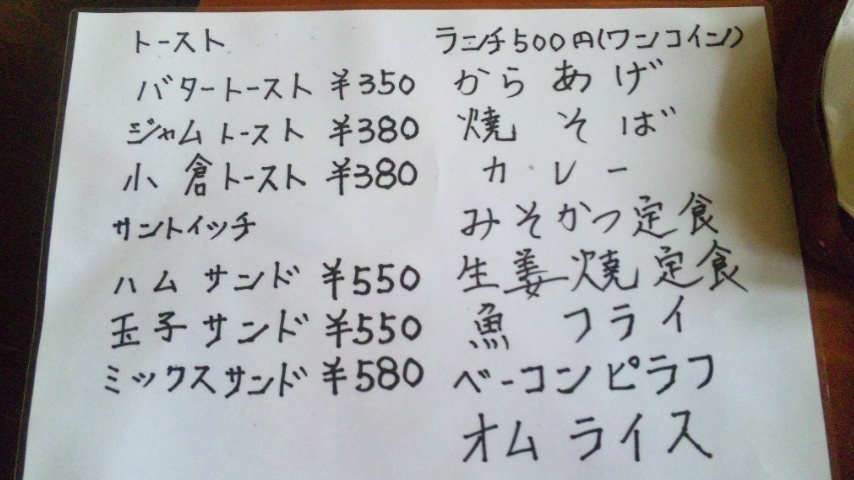 トースト
バタートースト ¥350
ジャムトースト ¥380
小倉トースト ¥380
サントイッチ
ハムサンド ¥550
玉子サンド ¥550
ミックスサンド ¥580
ランチ500円(ワンコイン)
からあげ
焼そば
カレー
みそかつ定食
生姜焼定食
魚フライ
ベーコンピラフ
オムライス